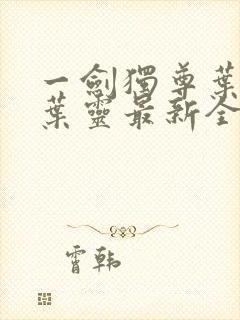 一劍獨尊葉
葉靈最新全
霄韩